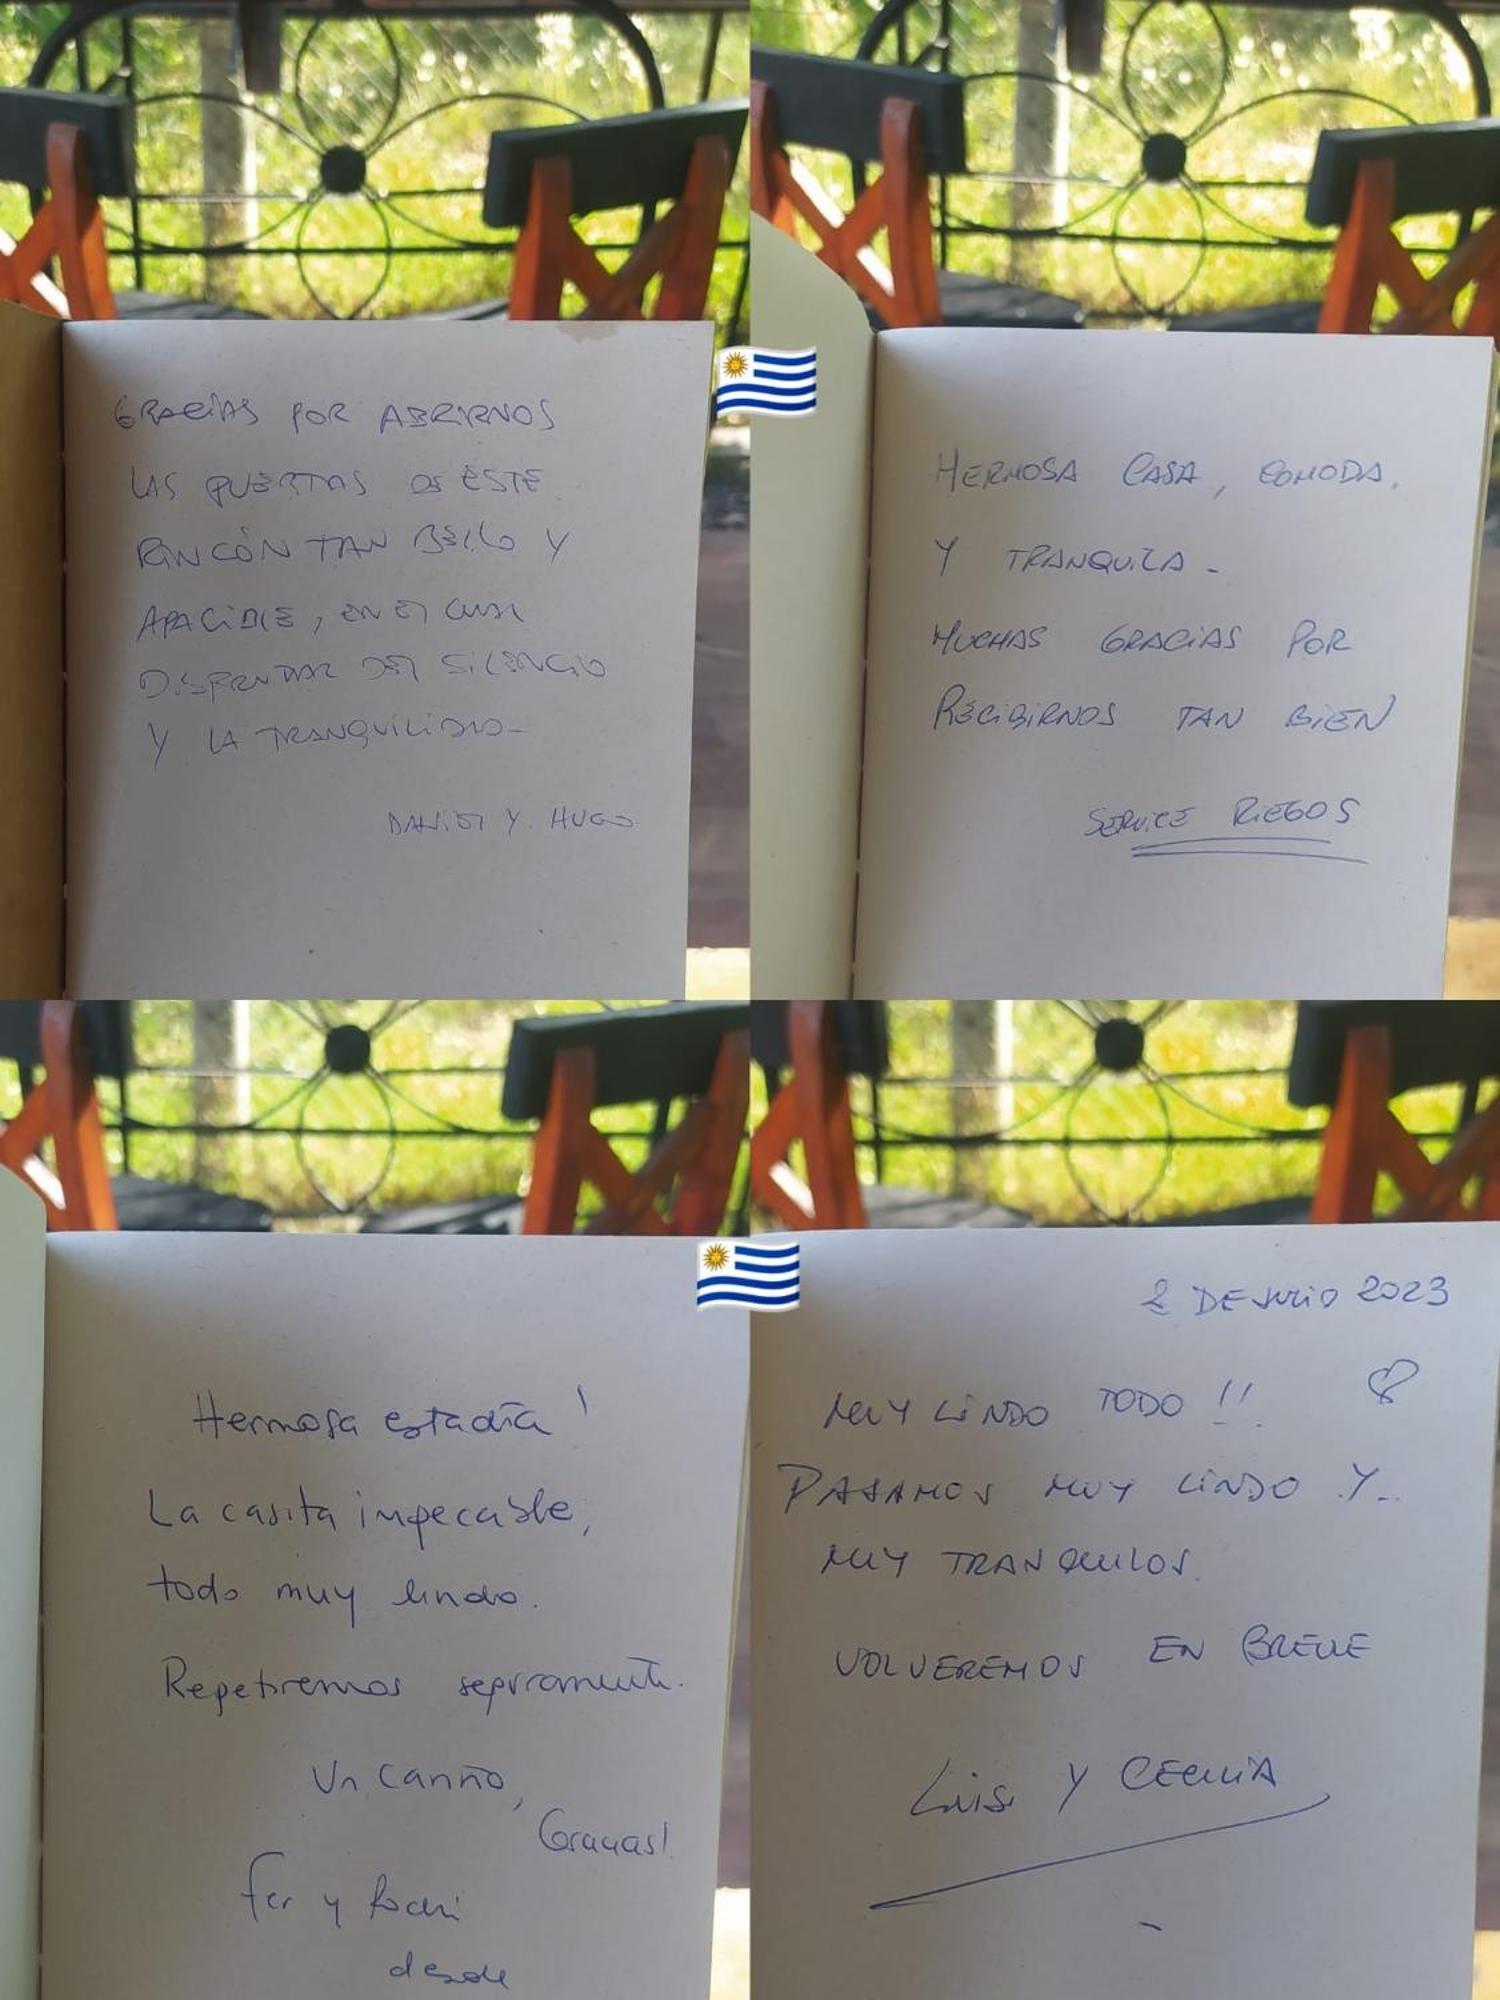 GRACIAS POR ABRIRNOS
LAS PUERTAS DE ESTE
RINCÓN TAN BELLO Y
APACIBLE, EN EL CUAL
DISFRUTAR DEL SILENCIO
Y LA TRANQUILIDAD-
DANIEL Y HUGO
HERMOSA CASA, COMODA,
Y TRANQUILA-
MUCHAS GRACIAS POR
RECIBIRNOS TAN BIEN
SERVICE RIEGOS
Hermosa estadía!
La casita impecable,
todo muy lindo.
Repetiremos seguramente.
Un cariño,
Gracias!
Fer y
desde
2 DE JULIO 2023
MUY LINDO TODO !!
PASAMOS MUY LINDO Y..
MUY TRANQUILOS.
VOLVEREMOS EN BREVE
LUIS Y CECILIA